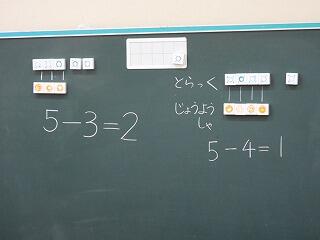 5-3=2
とらっく
じょうよう
しゃ
5-4=1